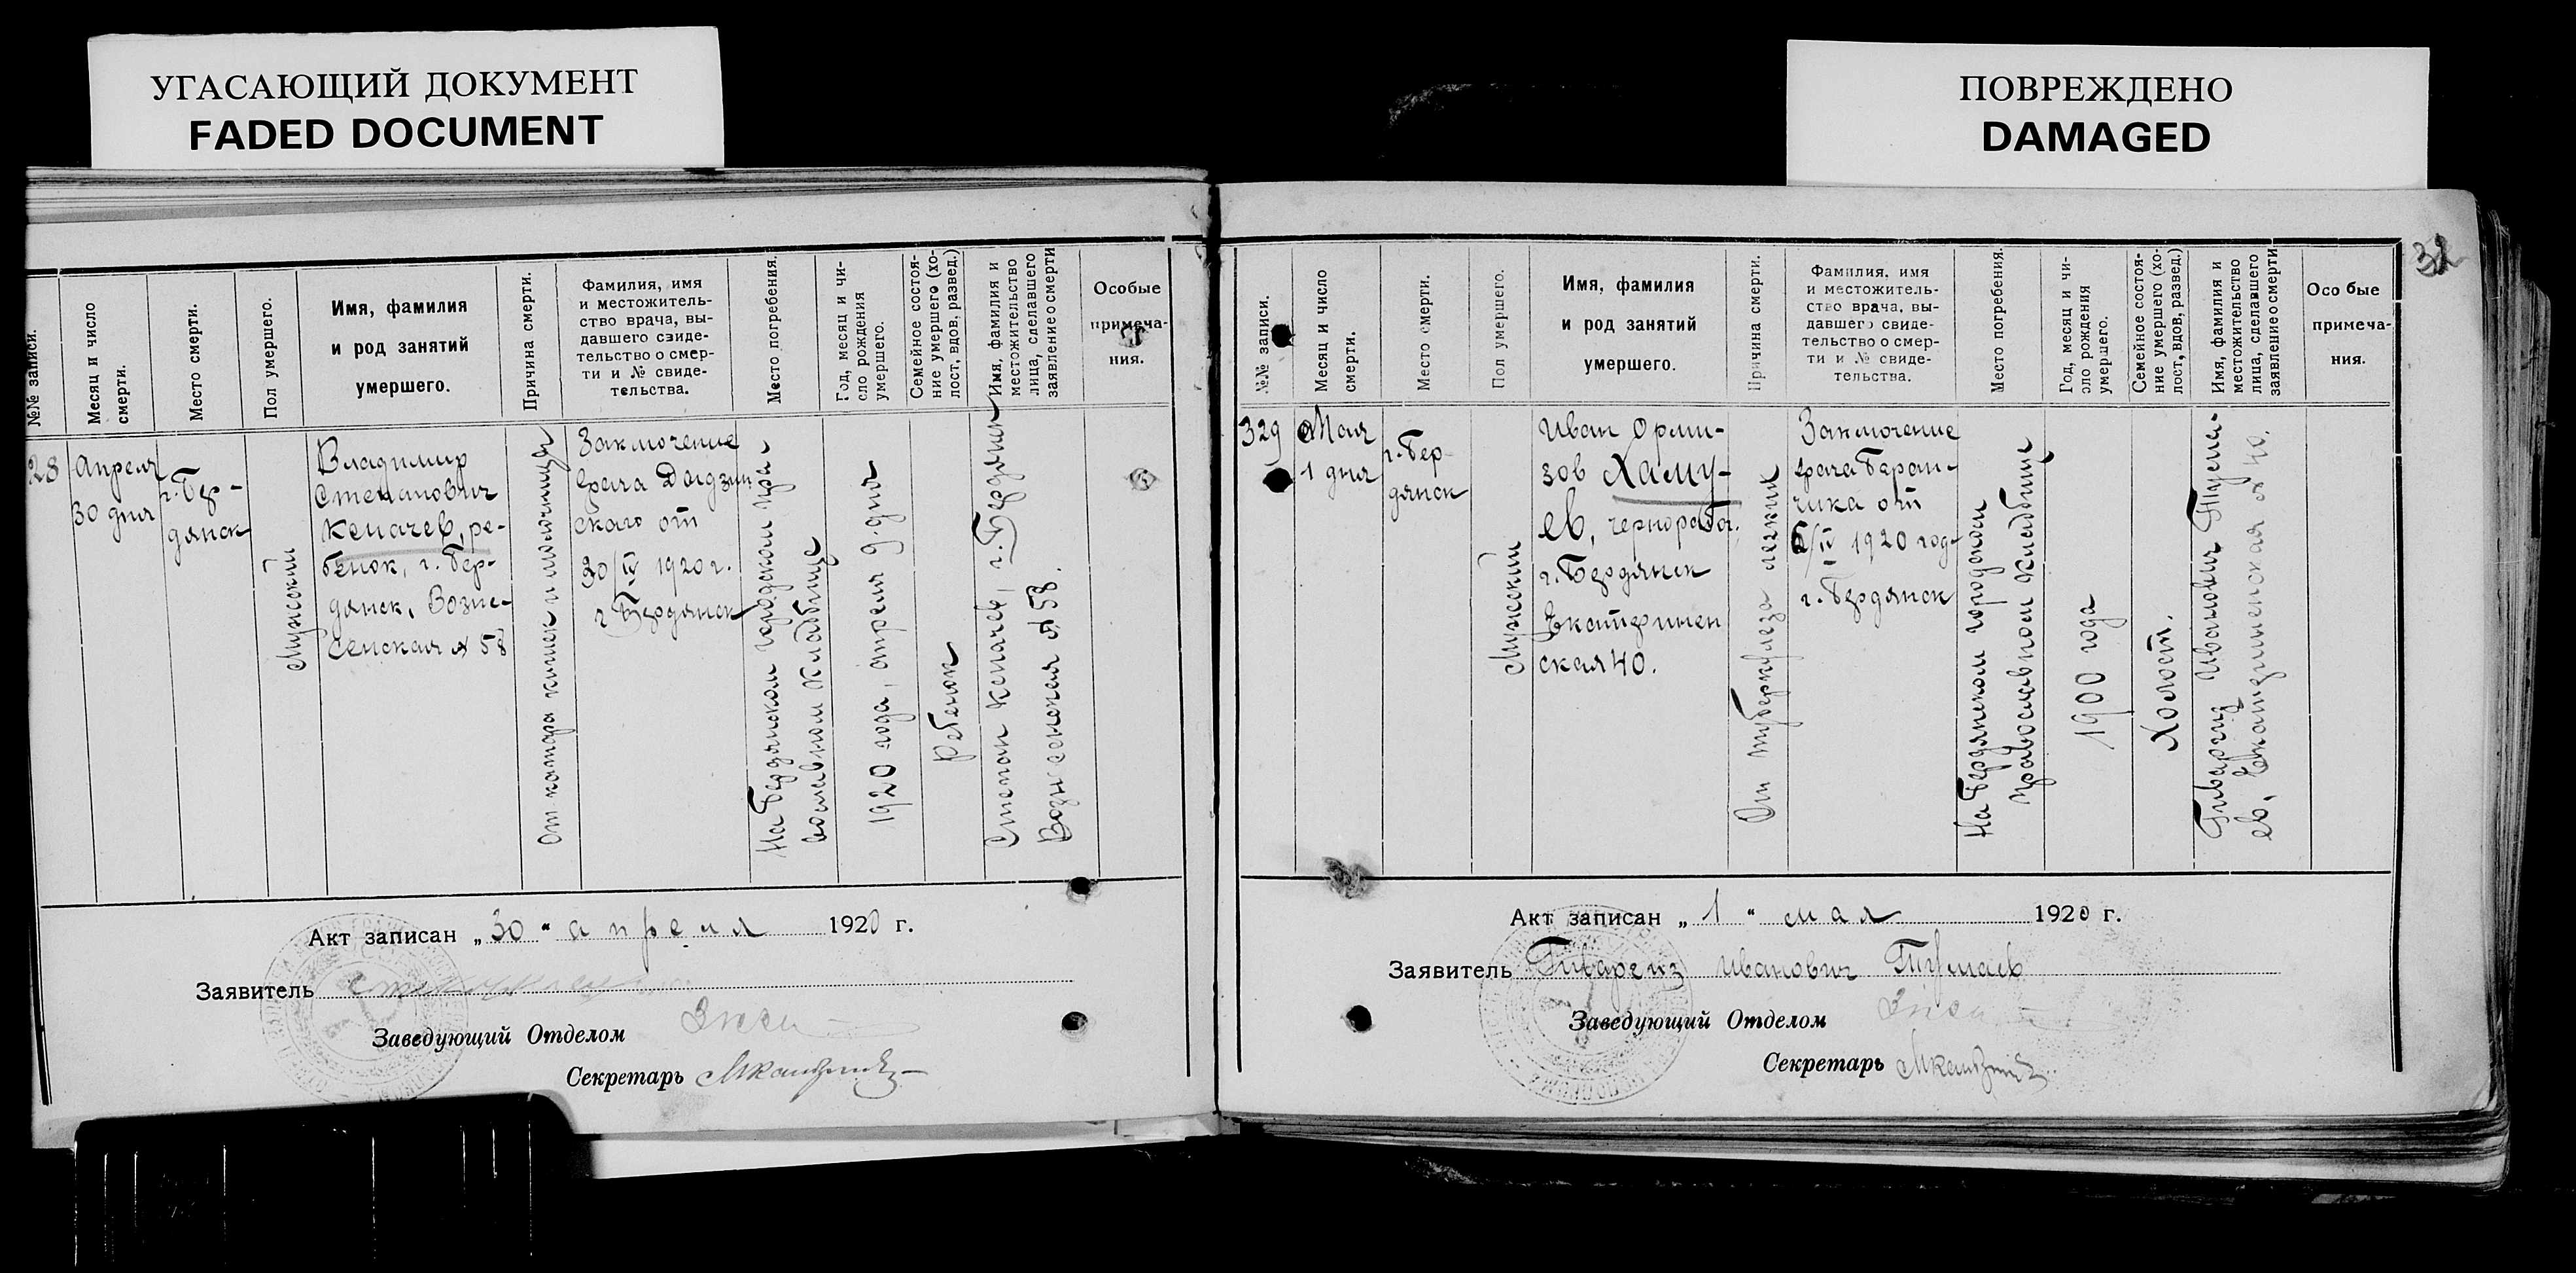 УГАСАЮЩИЙ ДОКУМЕНТ
FADED DOCUMENT
ПОВРЕЖДЕНО
DAMAGED
№№ записи.
Месяц и число
смерти.
Место смерти.
Пол умершего.
Имя, фамилия
и род занятий
умершего.
Причина смерти.
Фамилия, имя
и местожитель-
ство врача, вы-
давшего свиде-
тельство о смер-
ти и № свиде-
тельства.
Место погребения.
Год, месяц и чи-
сло рождения
умершего.
Семейное состоя-
ние умершего (хо-
лост, вдов, развед.)
Имя, фамилия и
местожительство
лица, сделавшего
заявление о смерти
Особые
примеча-
ния.
28
Апреля
30 дня
г. Бер-
дянск
Мужской
Владимир
Степанович
Кепачев, ре-
бенок, г. Бер-
дянск, Возне-
сенская № 58
От катара кишек и
Заключение
врача
ского от
30/IV 1920 г.
г. Бердянск
На Бердянском городском пра-
вославном кладбище
1920 года, апреля 9 дня
Ребенок
Степан Кепачев, г. Бердянск
Вознесенская № 58.
Акт записан „30“ апреля 1920 г.
Заявитель
Заведующий Отделом
Секретарь
32
№№ записи.
Месяц и число
смерти.
Место смерти.
Пол умершего.
Имя, фамилия
и род занятий
умершего.
Причина смерти.
Фамилия, имя
и местожитель-
ство врача, вы-
давшего свиде-
тельство о смер-
ти и № свиде-
тельства.
Место погребения.
Год, месяц и чи-
сло рождения
умершего.
Семейное состоя-
ние умершего (хо-
лост, вдов, развед.)
Имя, фамилия и
местожительство
лица, сделавшего
заявление о смерти
Особые
примеча-
ния.
329
Мая
1 дня
г. Бер
дянск
Мужской
Иван Орми-
зов Хаму-
ев, чернорабоч.
г. Бердянск
Екатеринен
ская 40.
От туберкулеза легких
Заключение
врача Баран-
чика от
/IV 1920 год
г. Бердянск
На Бердянском городском
православном кладбище
1900 года
Холост.
Гиваргиз Иванович Тума-
ев, Екатериненская № 40.
Акт записан „1“ мая 1920 г.
Заявитель Гиваргиз Иванович Тумаев
Заведующий Отделом
Секретарь